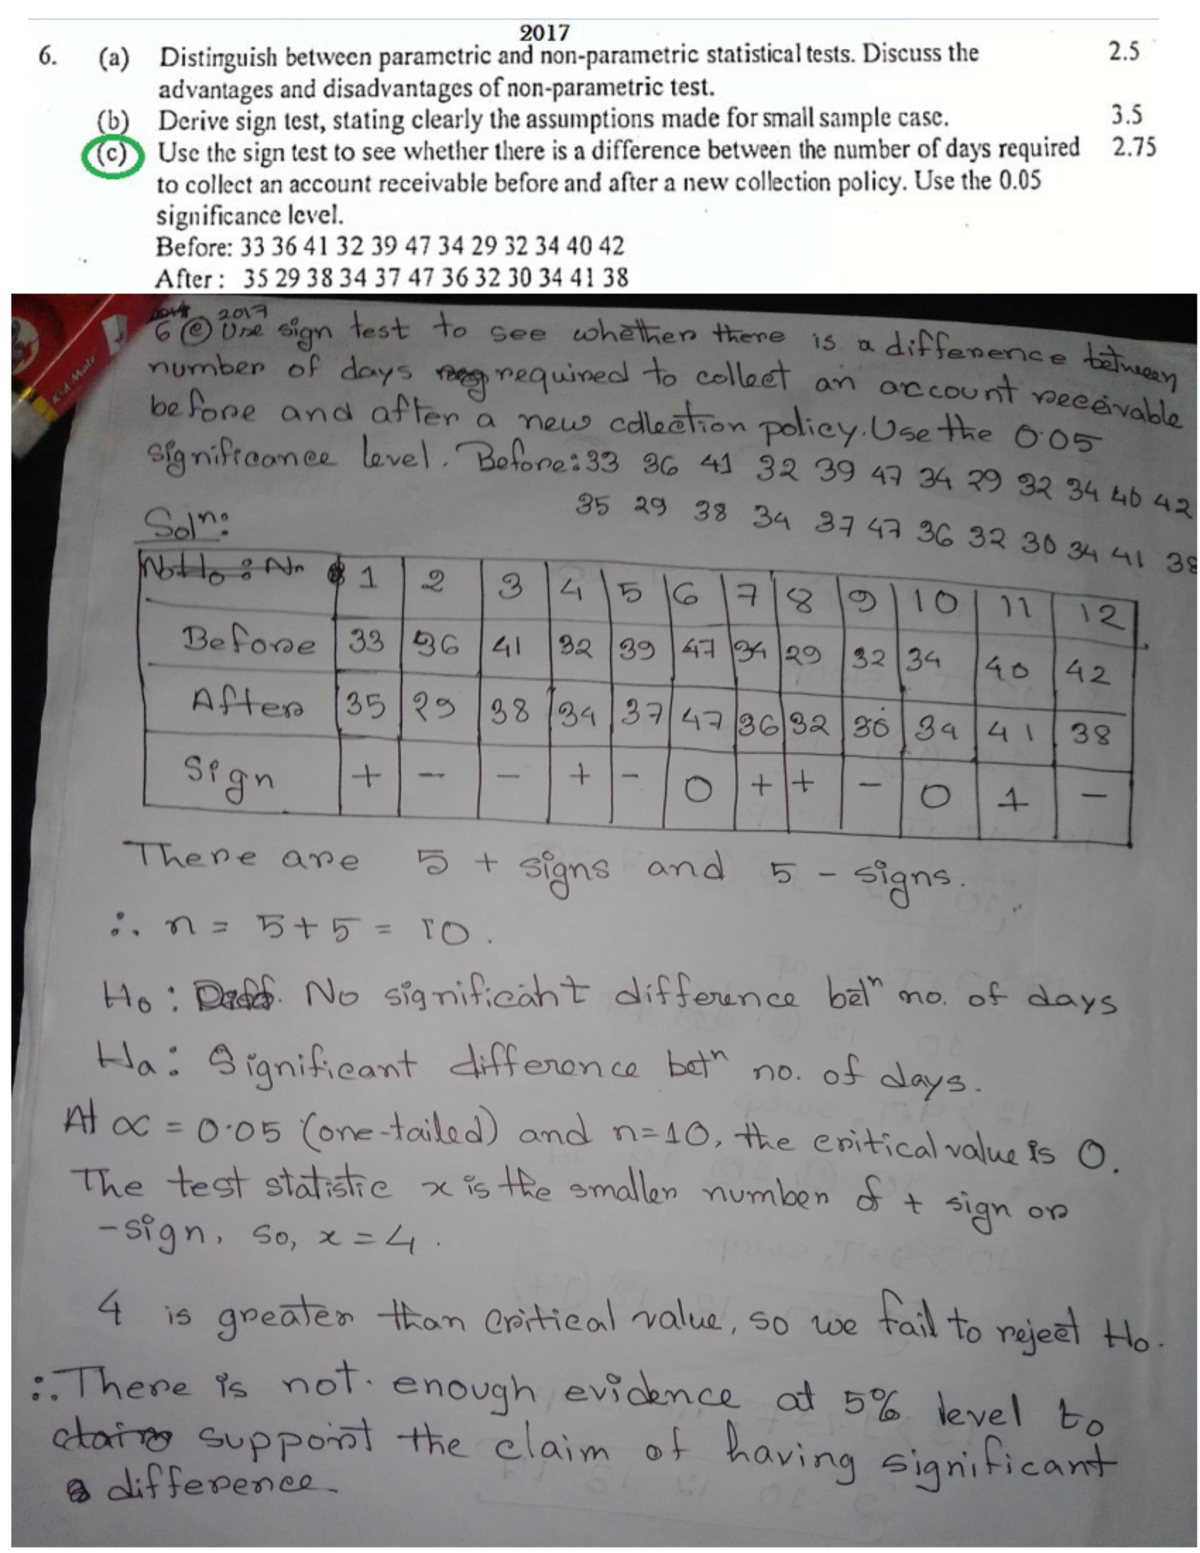 2017
6. (a) Distinguish between parametric and non-parametric statistical tests. Discuss the 2.5
advantages and disadvantages of non-parametric test.
(b) Derive sign test, stating clearly the assumptions made for small sample case. 3.5
(c) Use the sign test to see whether there is a difference between the number of days required 2.75
to collect an account receivable before and after a new collection policy. Use the 0.05
significance level.
Before: 33 36 41 32 39 47 34 29 32 34 40 42
After : 35 29 38 34 37 47 36 32 30 34 41 38
Kid Mate
2017
6 (c) Use sign test to see whether there is a difference between
number of days required to collect an account receivable
before and after a new collection policy. Use the 0.05
significance level. Before: 33 36 41 32 39 47 34 29 32 34 40 42
35 29 38 34 37 47 36 32 30 34 41 38
Solⁿ:
1 2 3 4 5 6 7 8 9 10 11 12
Before 33 36 41 32 39 47 34 29 32 34 40 42
After 35 29 38 34 37 47 36 32 30 34 41 38
Sign + - - + - 0 + + - 0 + -
There are 5 + signs and 5 - signs.
∴ n = 5+5 = 10.
Ho : No significant difference betⁿ no. of days
Ha : Significant difference betⁿ no. of days.
At α = 0.05 (one-tailed) and n=10, the critical value is 0.
The test statistic x is the smaller number of + sign or
-sign, so, x = 4.
4 is greater than critical value, so we fail to reject Ho.
∴ There is not enough evidence at 5% level to
support the claim of having significant
difference.